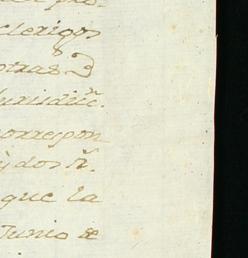 clerigos
otras D
Jurisdicc.
correspon
y dos rs.
que la
Junio de